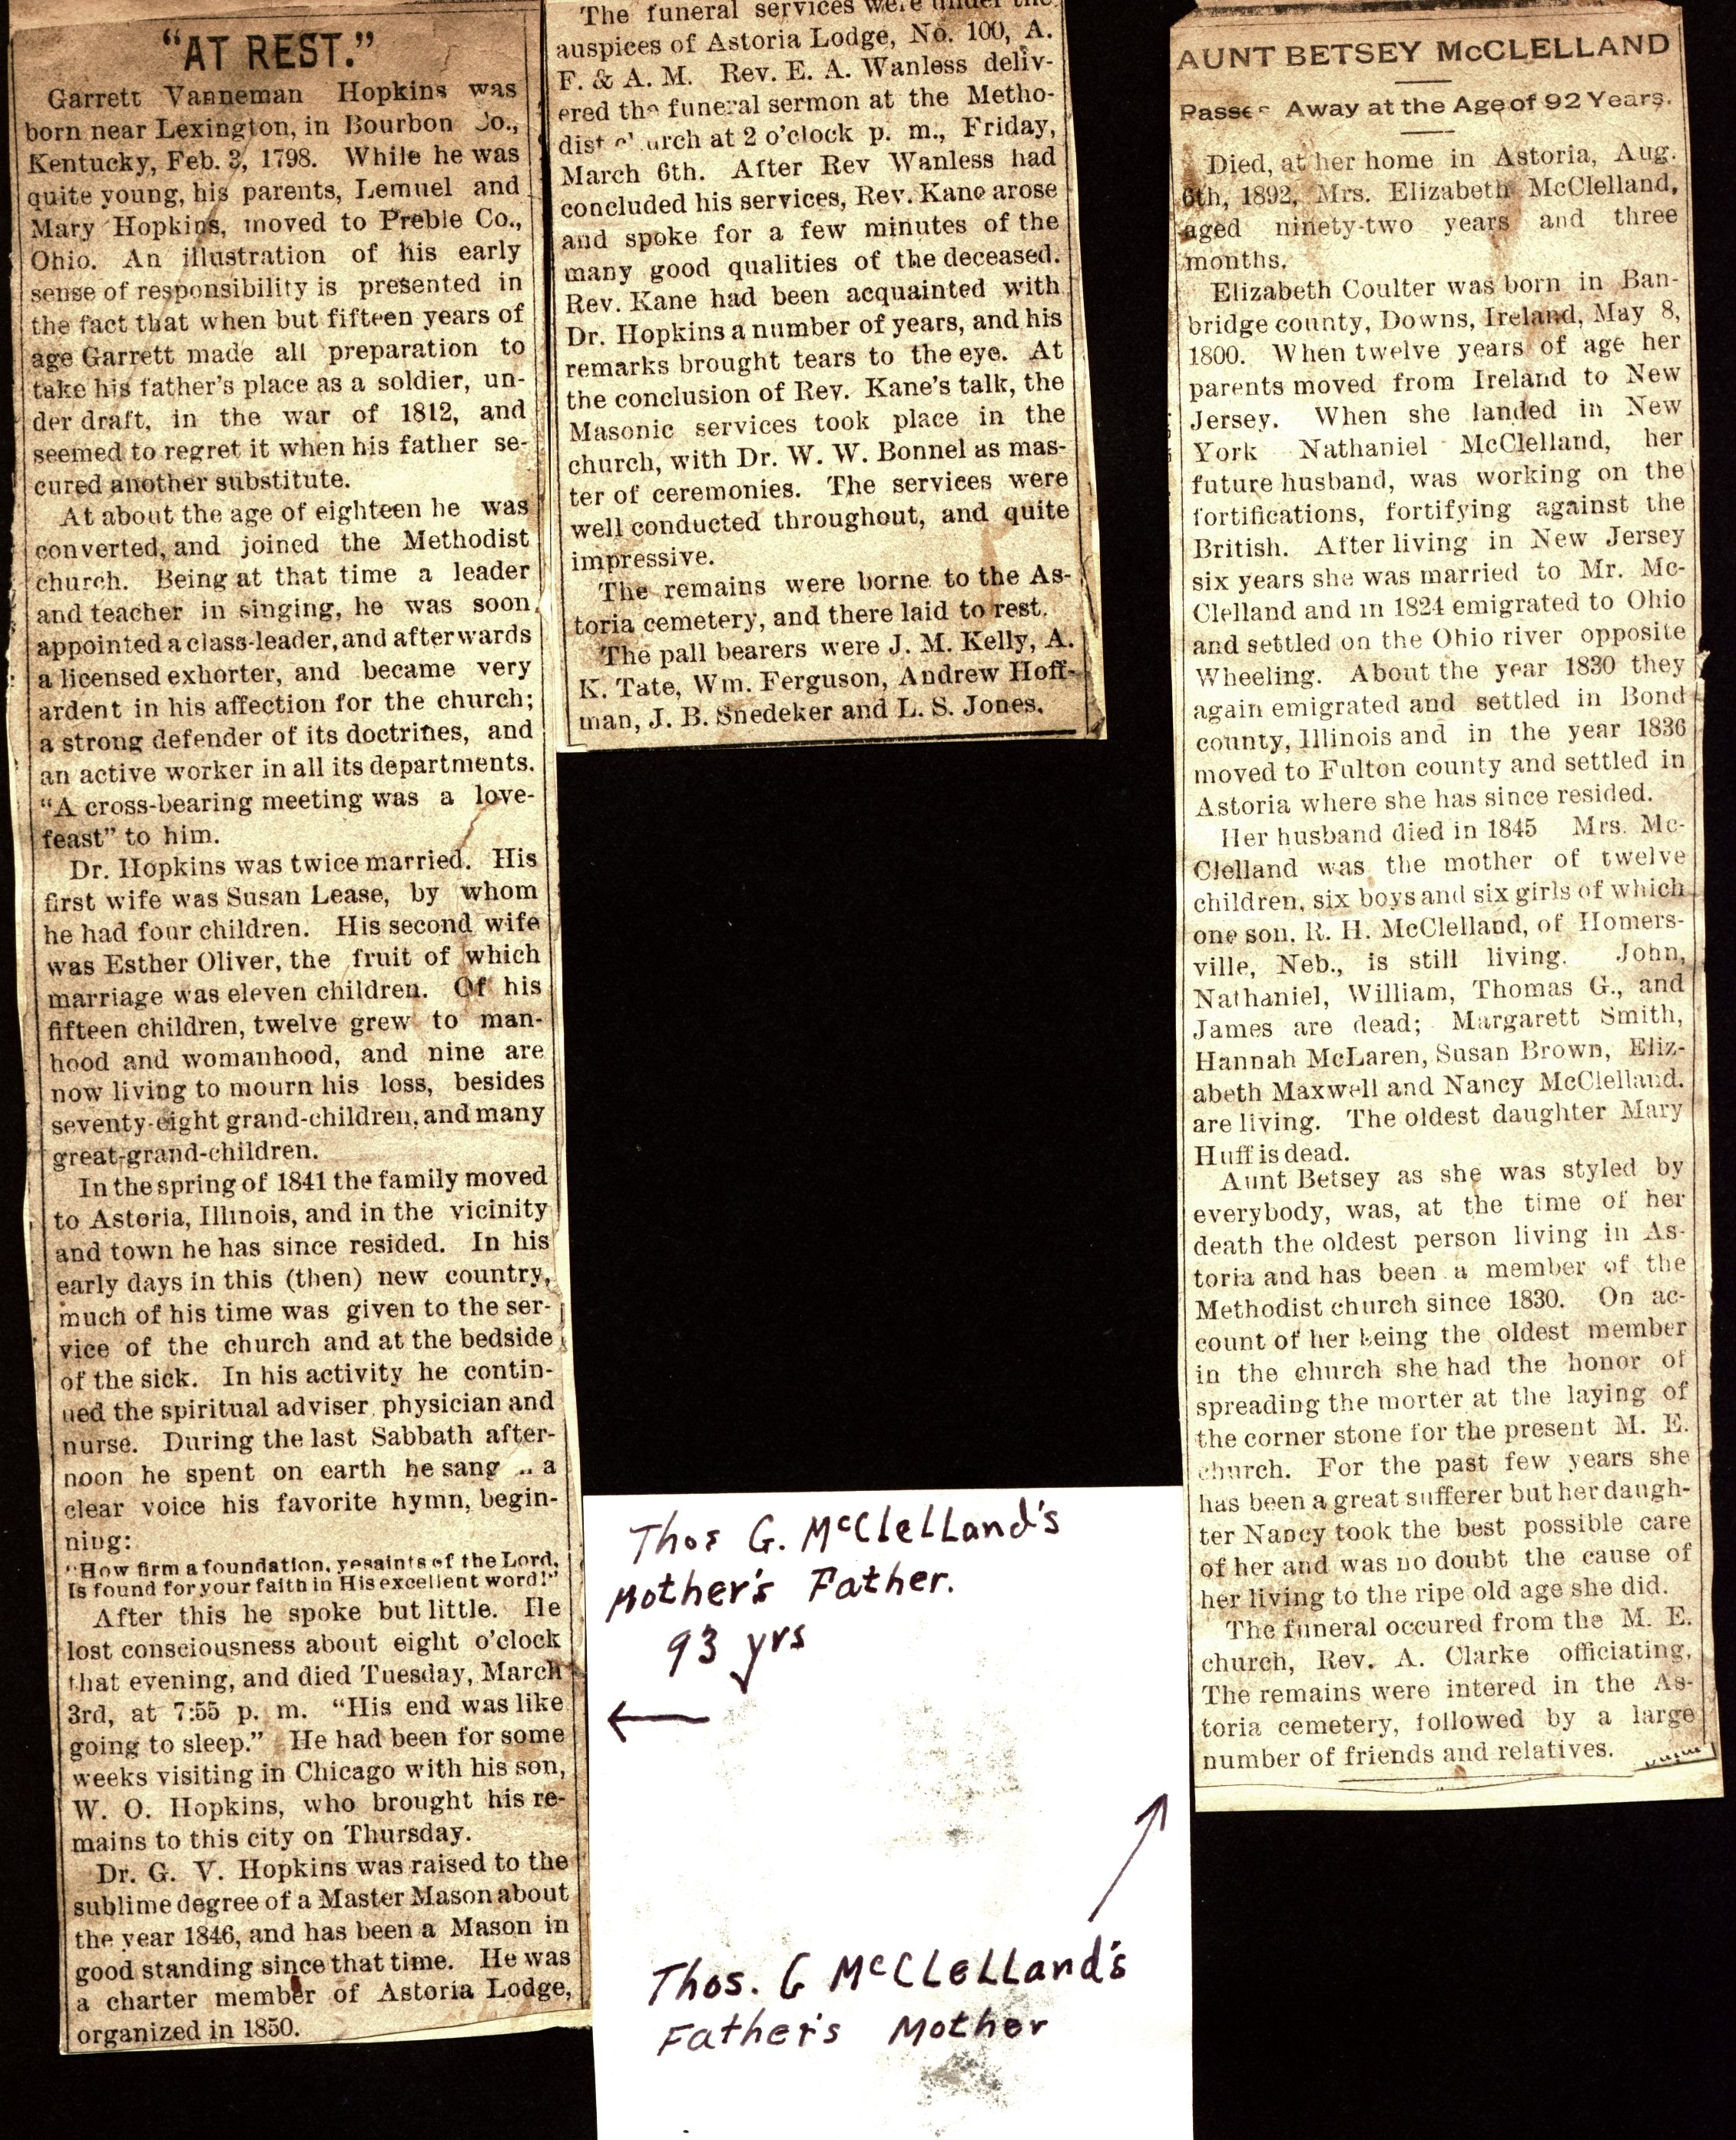 "AT REST."
Garrett Vanneman Hopkins was
born near Lexington, in Bourbon Co.,
Kentucky, Feb. 3, 1798. While he was
quite young, his parents, Lemuel and
Mary Hopkins, moved to Preble Co.,
Ohio. An illustration of his early
sense of responsibility is presented in
the fact that when but fifteen years of
age Garrett made all preparation to
take his father's place as a soldier, un-
der draft, in the war of 1812, and
seemed to regret it when his father se-
cured another substitute.
At about the age of eighteen he was
converted, and joined the Methodist
church. Being at that time a leader
and teacher in singing, he was soon
appointed a class-leader, and afterwards
a licensed exhorter, and became very
ardent in his affection for the church;
a strong defender of its doctrines, and
an active worker in all its departments.
"A cross-bearing meeting was a love-
feast" to him.
Dr. Hopkins was twice married. His
first wife was Susan Lease, by whom
he had four children. His second wife
was Esther Oliver, the fruit of which
marriage was eleven children. Of his
fifteen children, twelve grew to man-
hood and womanhood, and nine are
now living to mourn his loss, besides
seventy-eight grand-children, and many
great-grand-children.
In the spring of 1841 the family moved
to Astoria, Illinois, and in the vicinity
and town he has since resided. In his
early days in this (then) new country,
much of his time was given to the ser-
vice of the church and at the bedside
of the sick. In his activity he contin-
ued the spiritual adviser, physician and
nurse. During the last Sabbath after-
noon he spent on earth he sang a
clear voice his favorite hymn, begin-
ning:
"How firm a foundation, ye saints of the Lord,
Is found for your faith in His excellent word!"
After this he spoke but little. He
lost consciousness about eight o'clock
that evening, and died Tuesday, March
3rd, at 7:55 p. m. "His end was like
going to sleep." He had been for some
weeks visiting in Chicago with his son,
W. O. Hopkins, who brought his re-
mains to this city on Thursday.
Dr. G. V. Hopkins was raised to the
sublime degree of a Master Mason about
the year 1846, and has been a Mason in
good standing since that time. He was
a charter member of Astoria Lodge,
organized in 1850.
The funeral services were under the
auspices of Astoria Lodge, No. 100, A.
F. & A. M. Rev. E. A. Wanless deliv-
ered the funeral sermon at the Metho-
dist church at 2 o'clock p. m., Friday,
March 6th. After Rev Wanless had
concluded his services, Rev. Kane arose
and spoke for a few minutes of the
many good qualities of the deceased.
Rev. Kane had been acquainted with
Dr. Hopkins a number of years, and his
remarks brought tears to the eye. At
the conclusion of Rev. Kane's talk, the
Masonic services took place in the
church, with Dr. W. W. Bonnel as mas-
ter of ceremonies. The services were
well conducted throughout, and quite
impressive.
The remains were borne to the As-
toria cemetery, and there laid to rest.
The pall bearers were J. M. Kelly, A.
K. Tate, Wm. Ferguson, Andrew Hoff-
man, J. B. Snedeker and L. S. Jones.
Thos G. McClelland's
Mother's Father.
93 yrs
Thos. G McClelland's
Father's Mother
AUNT BETSEY McCLELLAND
Passes Away at the Age of 92 Years.
Died, at her home in Astoria, Aug.
6th, 1892, Mrs. Elizabeth McClelland,
aged ninety-two years and three
months.
Elizabeth Coulter was born in Ban-
bridge county, Downs, Ireland, May 8,
1800. When twelve years of age her
parents moved from Ireland to New
Jersey. When she landed in New
York Nathaniel McClelland, her
future husband, was working on the
fortifications, fortifying against the
British. After living in New Jersey
six years she was married to Mr. Mc-
Clelland and in 1824 emigrated to Ohio
and settled on the Ohio river opposite
Wheeling. About the year 1830 they
again emigrated and settled in Bond
county, Illinois and in the year 1836
moved to Fulton county and settled in
Astoria where she has since resided.
Her husband died in 1845 Mrs. Mc-
Clelland was the mother of twelve
children, six boys and six girls of which
one son, R. H. McClelland, of Homers-
ville, Neb., is still living. John,
Nathaniel, William, Thomas G., and
James are dead; Margarett Smith,
Hannah McLaren, Susan Brown, Eliz-
abeth Maxwell and Nancy McClelland.
are living. The oldest daughter Mary
Huff is dead.
Aunt Betsey as she was styled by
everybody, was, at the time of her
death the oldest person living in As-
toria and has been a member of the
Methodist church since 1830. On ac-
count of her being the oldest member
in the church she had the honor of
spreading the morter at the laying of
the corner stone for the present M. E.
church. For the past few years she
has been a great sufferer but her daugh-
ter Nancy took the best possible care
of her and was no doubt the cause of
her living to the ripe old age she did.
The funeral occured from the M. E.
church, Rev. A. Clarke officiating,
The remains were intered in the As-
toria cemetery, followed by a large
number of friends and relatives.